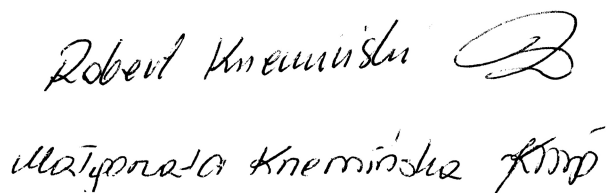 Robert Krzemiński
Małgorzata Krzemińska